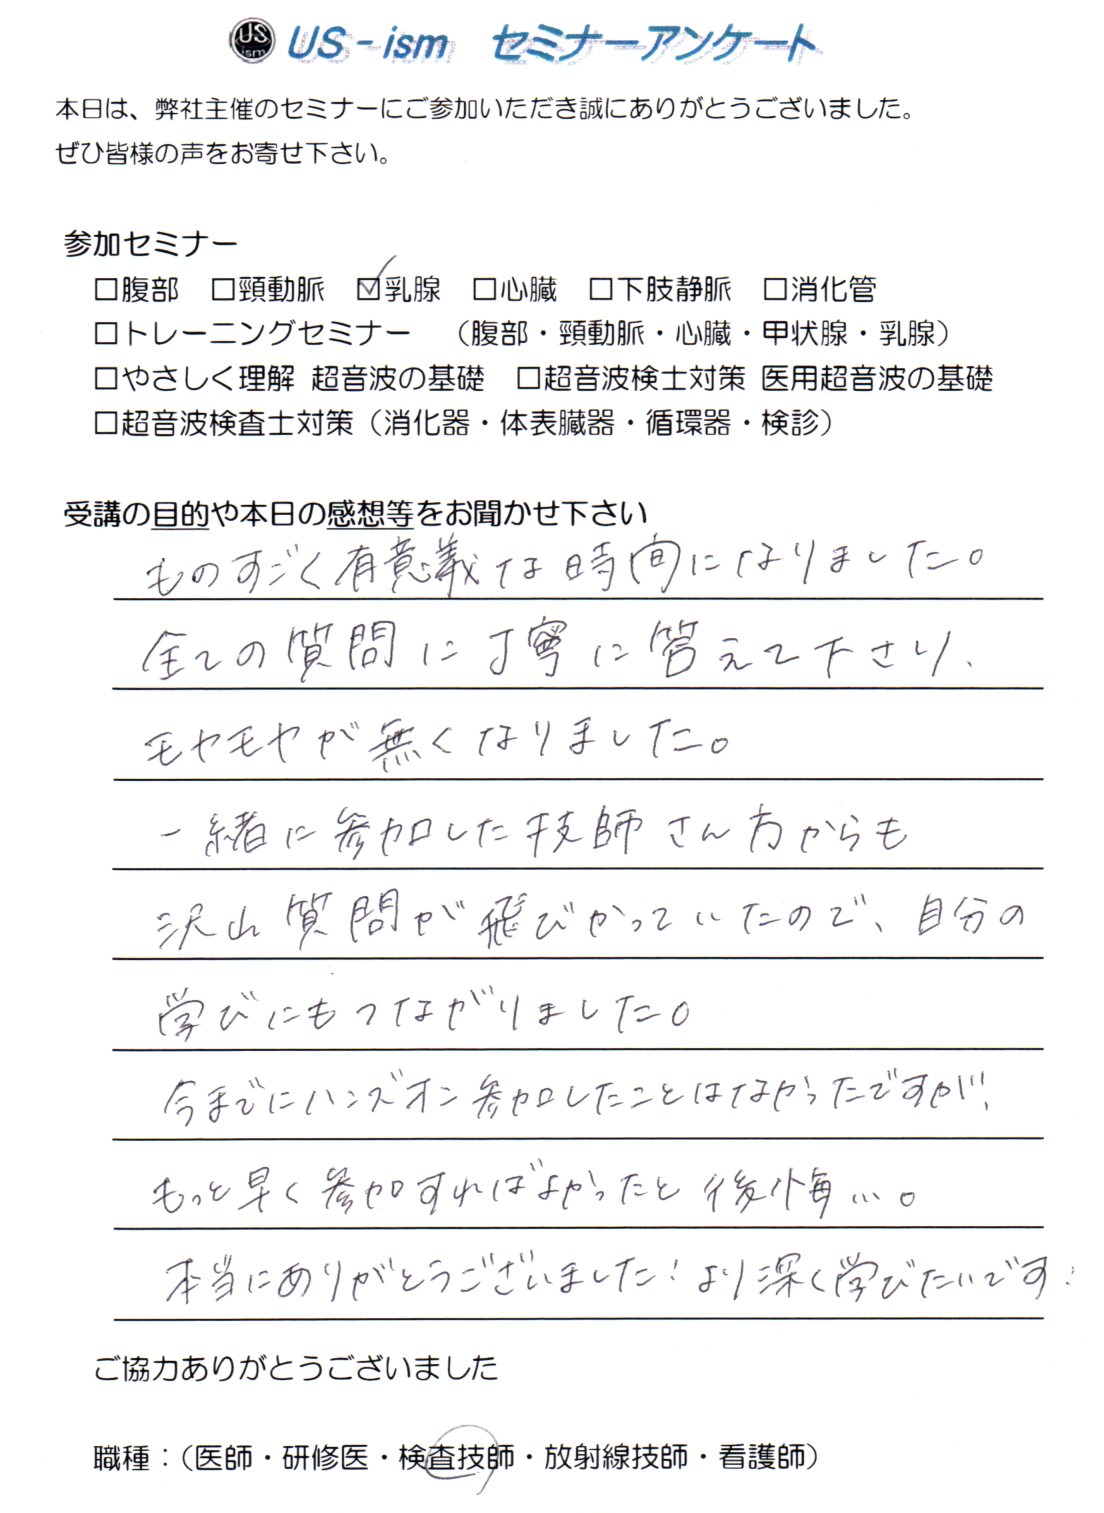 US ism US-ism セミナーアンケート
本日は、弊社主催のセミナーにご参加いただき誠にありがとうございました。
ぜひ皆様の声をお寄せ下さい。
参加セミナー
□腹部 □頸動脈 ☑乳腺 □心臓 □下肢静脈 □消化管
□トレーニングセミナー （腹部・頸動脈・心臓・甲状腺・乳腺）
□やさしく理解 超音波の基礎 □超音波検士対策 医用超音波の基礎
□超音波検査士対策（消化器・体表臓器・循環器・検診）
受講の目的や本日の感想等をお聞かせ下さい
ものすごく有意義な時間になりました。
全ての質問に丁寧に答えて下さり、
モヤモヤが無くなりました。
一緒に参加した技師さん方からも
沢山質問が飛びかっていたので、自分の
学びにもつながりました。
今までにハンズオン参加したことはなかったですが、
もっと早く参加すればよかったと後悔…。
本当にありがとうございました！より深く学びたいです！
ご協力ありがとうございました
職種：（医師・研修医・検査技師・放射線技師・看護師）